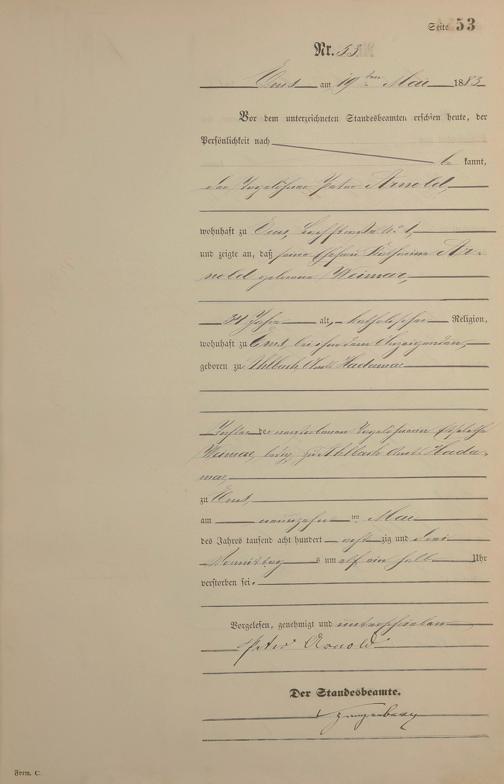 Seite 53
Nr. 53
Ems am 19ten Mai 1883
Vor dem unterzeichneten Standesbeamten erschien heute, der
Persönlichkeit nach
be kannt,
der Tagelöhner Peter Arnold,
wohnhaft zu Ems, N: 1,
und zeigte an, daß seine Ehefrau Katharina Ar-
nold geborene Weimar,
34 Jahre alt, katholischer Religion,
wohnhaft zu Ems, bei dem Anzeigenden,
geboren zu Ahlbach Amts Hadamar
Tochter der verstorbenen Tagelöhnerin Elisabetha
Weimar, ledig, zu Ahlbach Amts Hada-
mar,
zu Ems,
am neunzehn ten Mai
des Jahres tausend acht hundert acht zig und drei
Vormittags um elf ein halb Uhr
verstorben sei.
Vorgelesen, genehmigt und unterschrieben
Peter Arnold
Der Standesbeamte.
Form. C.